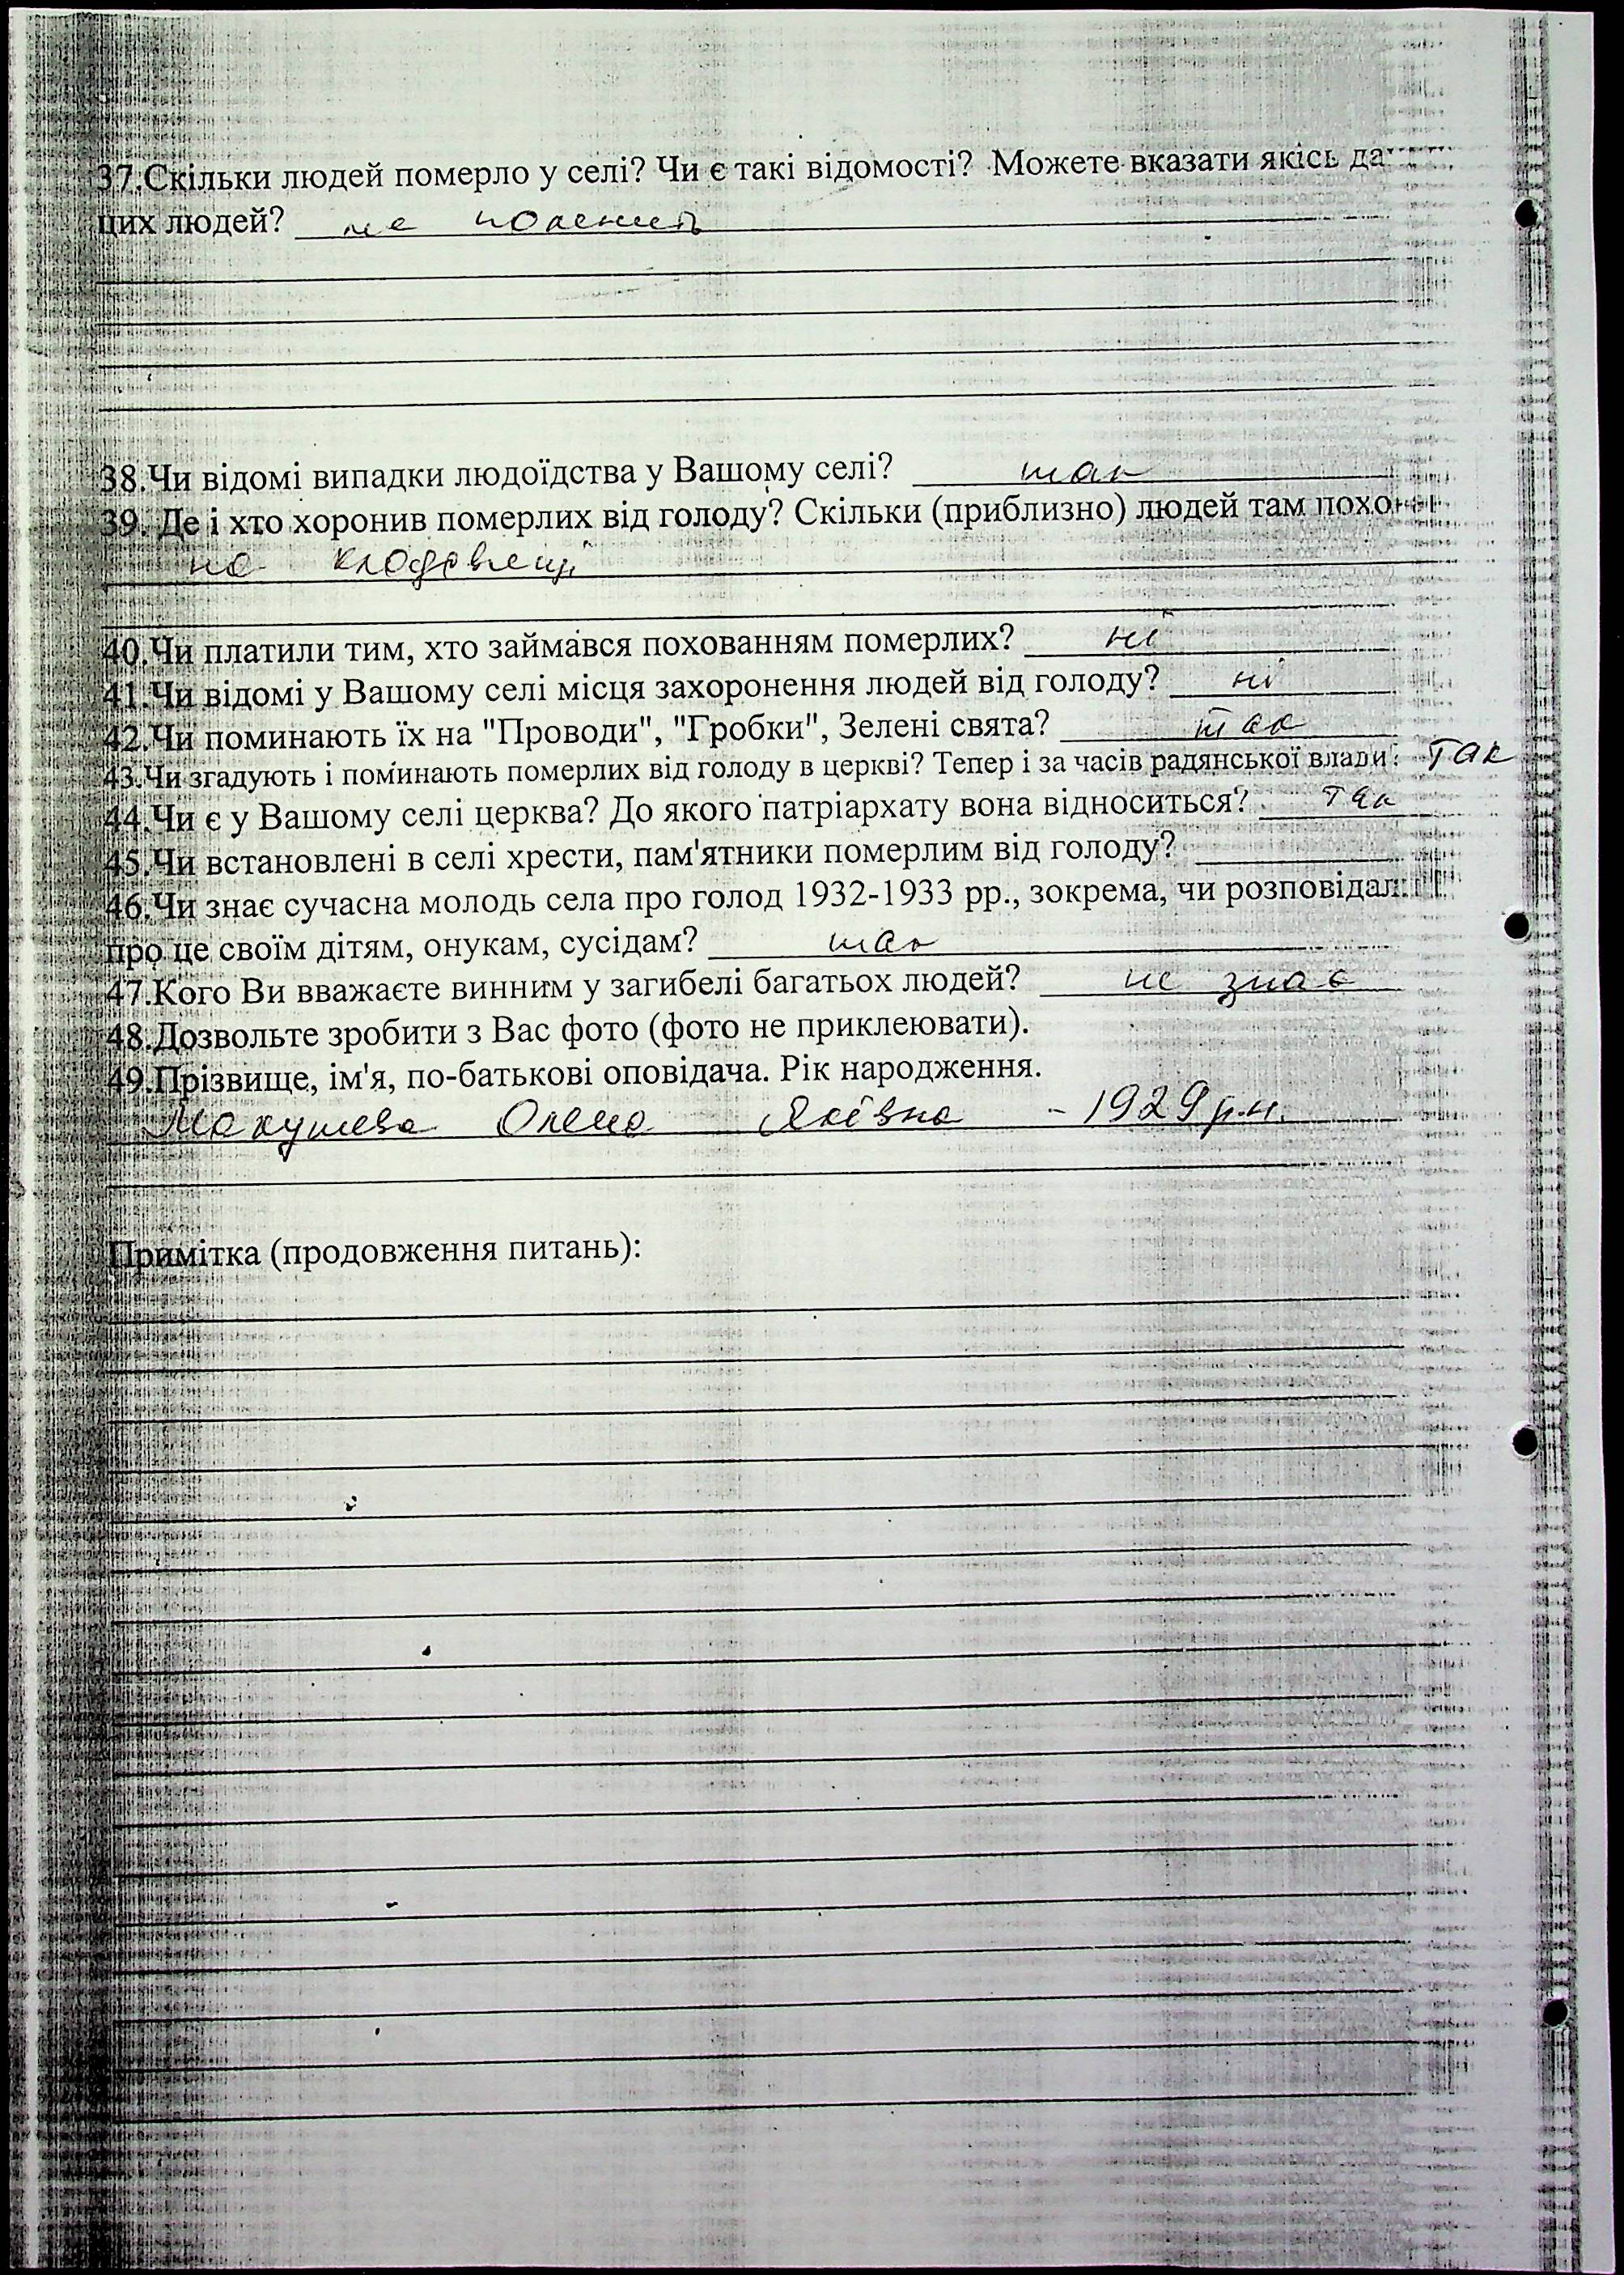 37.Скільки людей померло у селі? Чи є такі відомості? Можете вказати якісь да
цих людей? не
38.Чи відомі випадки людоїдства у Вашому селі? так
39. Де і хто хоронив померлих від голоду? Скільки (приблизно) людей там похо
на кладовищі
40.Чи платили тим, хто займався похованням померлих? ні
41.Чи відомі у Вашому селі місця захоронення людей від голоду? ні
42.Чи поминають їх на "Проводи", "Гробки", Зелені свята? так
43.Чи згадують і поминають померлих від голоду в церкві? Тепер і за часів радянської влади? Так
44.Чи є у Вашому селі церква? До якого патріархату вона відноситься? так
45.Чи встановлені в селі хрести, пам'ятники померлим від голоду?
46.Чи знає сучасна молодь села про голод 1932-1933 рр., зокрема, чи розповідал
про це своїм дітям, онукам, сусідам? так
47.Кого Ви вважаєте винним у загибелі багатьох людей? не знає
48.Дозвольте зробити з Вас фото (фото не приклеювати).
49.Прізвище, ім'я, по-батькові оповідача. Рік народження.
Макушева Олена Яківна - 1929 р.н.
Примітка (продовження питань):